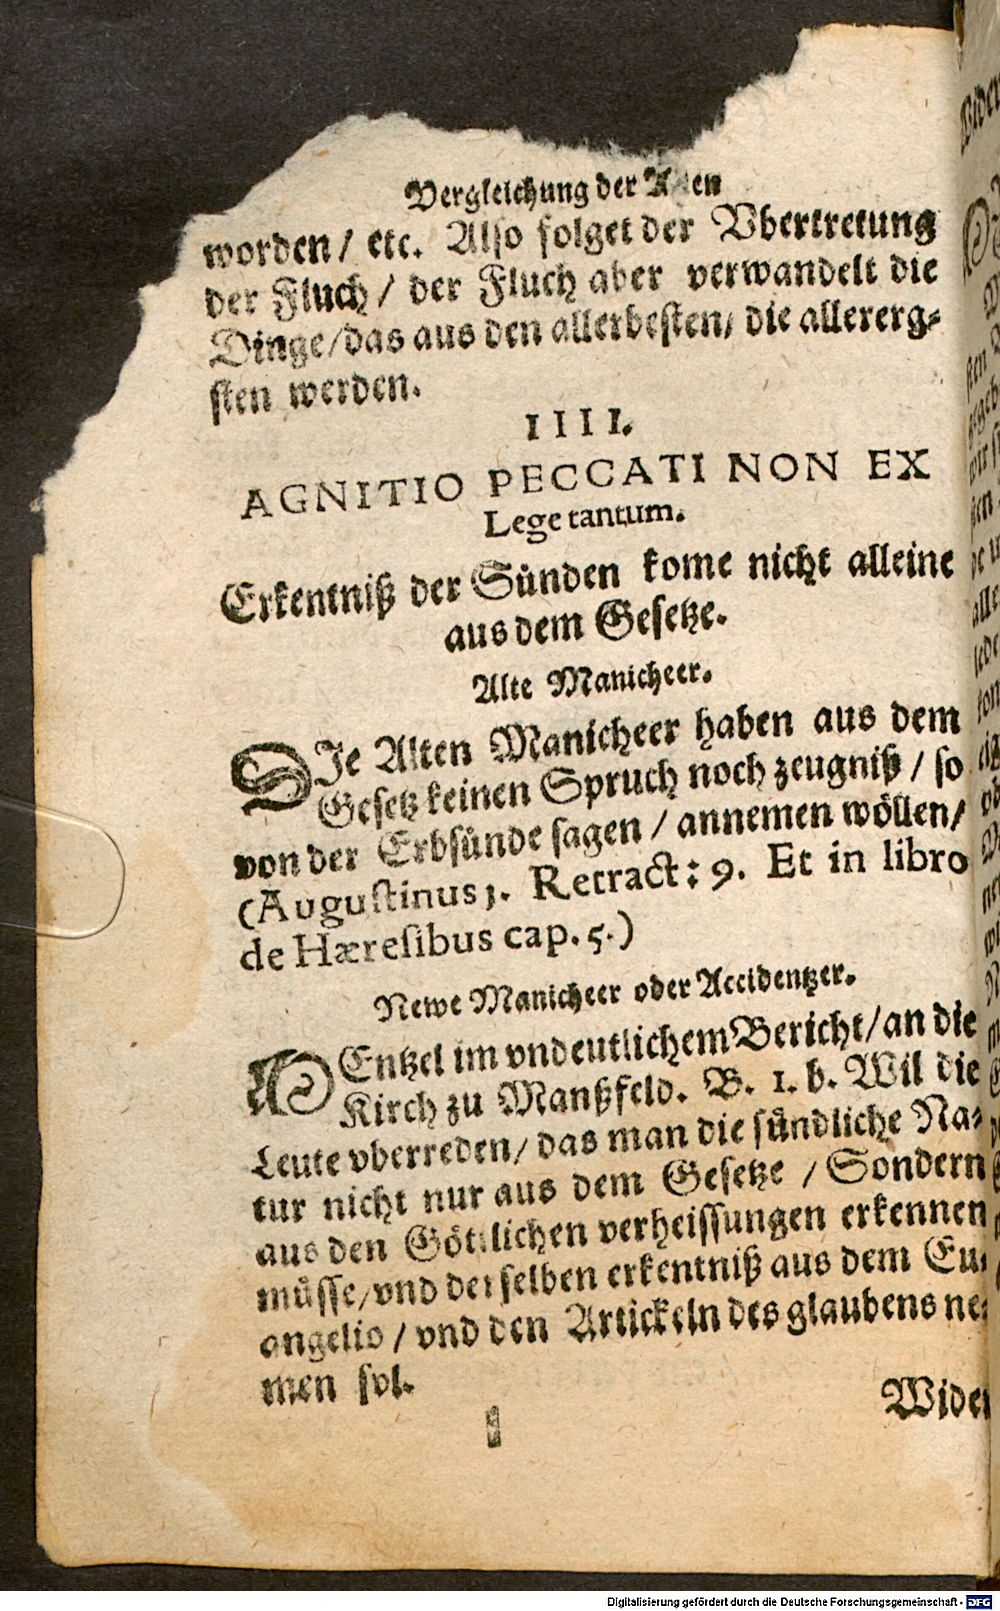 Vergleichung der Alten
worden / etc. Also folget der Vbertretung
der Fluch / der Fluch aber verwandelt die
Dinge / das aus den allerbesten / die allererg⸗
sten werden.
IIII.
AGNITIO PECCATI NON EX
Lege tantum.
Erkentniß der Sünden kome nicht alleine
aus dem Gesetze.
Alte Manicheer.
DIe Alten Manicheer haben aus dem
Gesetz keinen Spruch noch zeugniß / so
von der Erbsünde sagen / annemen wöllen /
(Augustinus 1. Retract: 9. Et in libro
de Hæresibus cap. 5.)
Newe Manicheer oder Accidentzer.
MEntzel im vndeutlichem Bericht / an die
Kirch zu Manßfeld. B. 1. b. Wil die
Leute vberreden / das man die sündliche Na⸗
tur nicht nur aus dem Gesetze / Sondern
aus den Göttlichen verheissungen erkennen
müsse / vnd derselben erkentniß aus dem Eu⸗
angelio / vnd den Artickeln des glaubens ne⸗
men sol.
Wider
Digitalisierung gefördert durch die Deutsche Forschungsgemeinschaft - DFG